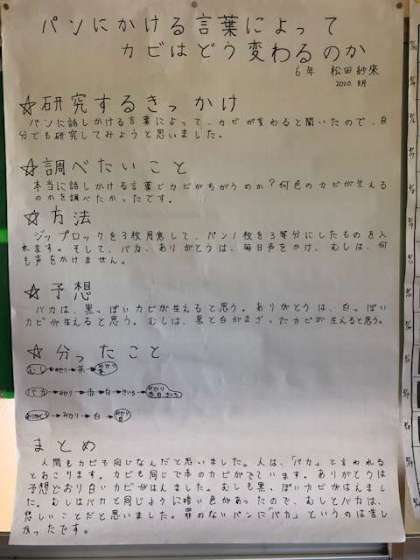 パンにかける言葉によって
カビはどう変わるのか
6年 松田紗來
☆研究するきっかけ
パンに話しかける言葉によって、カビが変わると聞いたので、自
分でも研究してみようと思いました。
☆調べたいこと
本当に話しかける言葉でカビがちがうのか?何色のカビが生える
のかを調べたかったです。
☆方法
ジップロックを3枚用意して、パン1枚を3等分にしたものを入
れます。そして、バカ、ありがとうは、毎日声をかけ、むしは、何
も声をかけません。
☆予想
バカは、黒っぽいカビが生えると思う。ありがとうは、白っぽい
カビが生えると思う。むしは、黒と白がまざったカビが生えると思う。
☆分ったこと
むし
バカ
ありがとう みかり 白
まとめ
人間もカビも同じなんだと思いました。人は、「バカ」と言われる
とおこります。カビも同じで赤のカビがでています。ありがとうは
予想どおり白いカビがはえました。むしも黒っぽいカビがはえまし
た。むしはバカと同じように暗い色があったので、むしとバカは、
悲しいことだと思いました。罪のないパンに「バカ」というのは苦し
かったです。